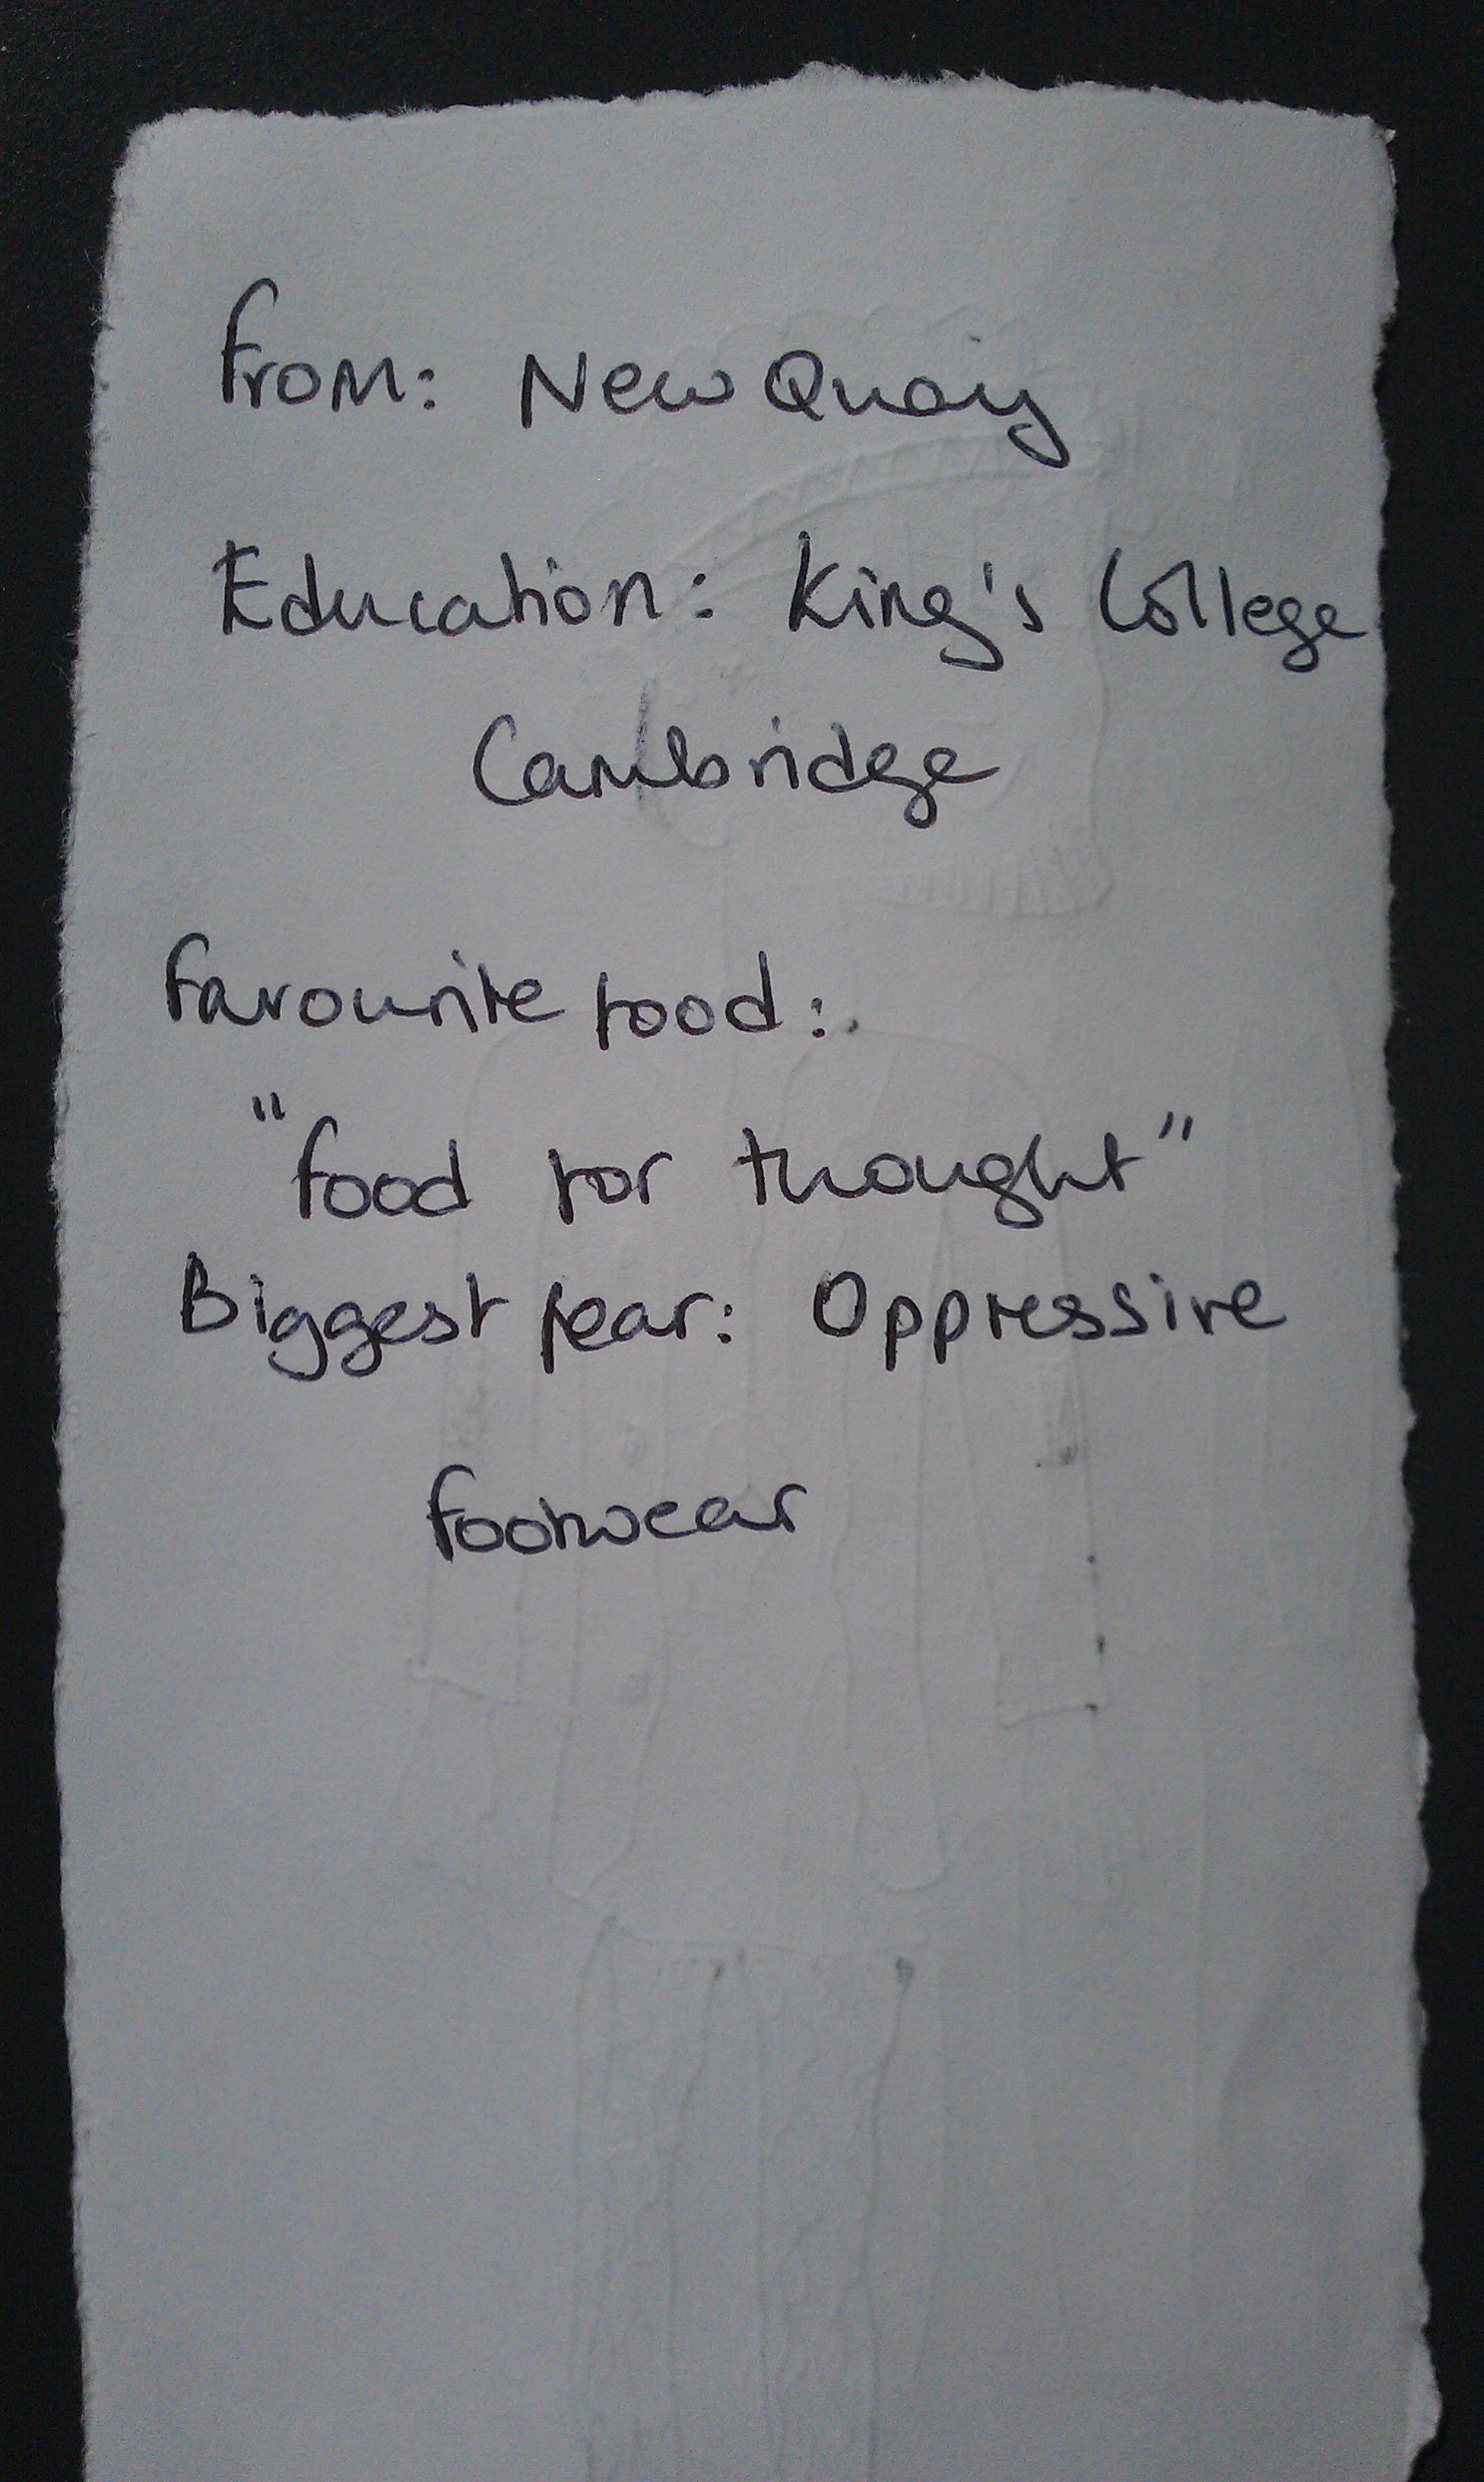 From: New Quay
Education: King's College
Cambridge
Favourite food:.
"Food for thought"
Biggest fear: Oppressive
Footwear